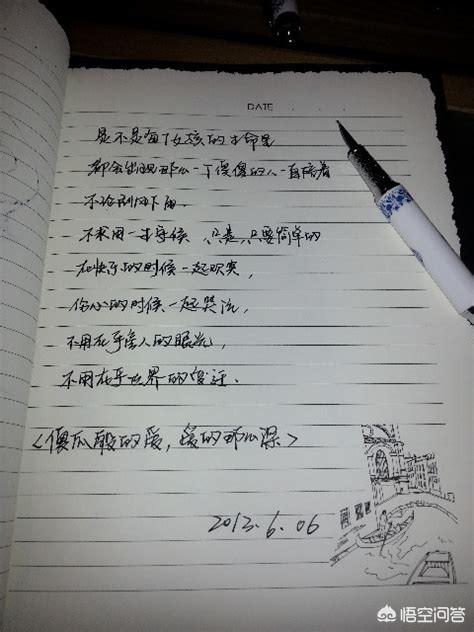 DATE
是不是每个女孩的生命里
都会出现那么一个傻傻的人一直陪着
不论刮风下雨.
不求用一生守候 只是只要简单的
在快乐的时候一起欢笑,
伤心的时候一起哭泣,
不用在乎旁人的眼光,
不用在乎世界的变迁.
<傻瓜般的爱,爱的那么深>
2013.6.06
悟空问答